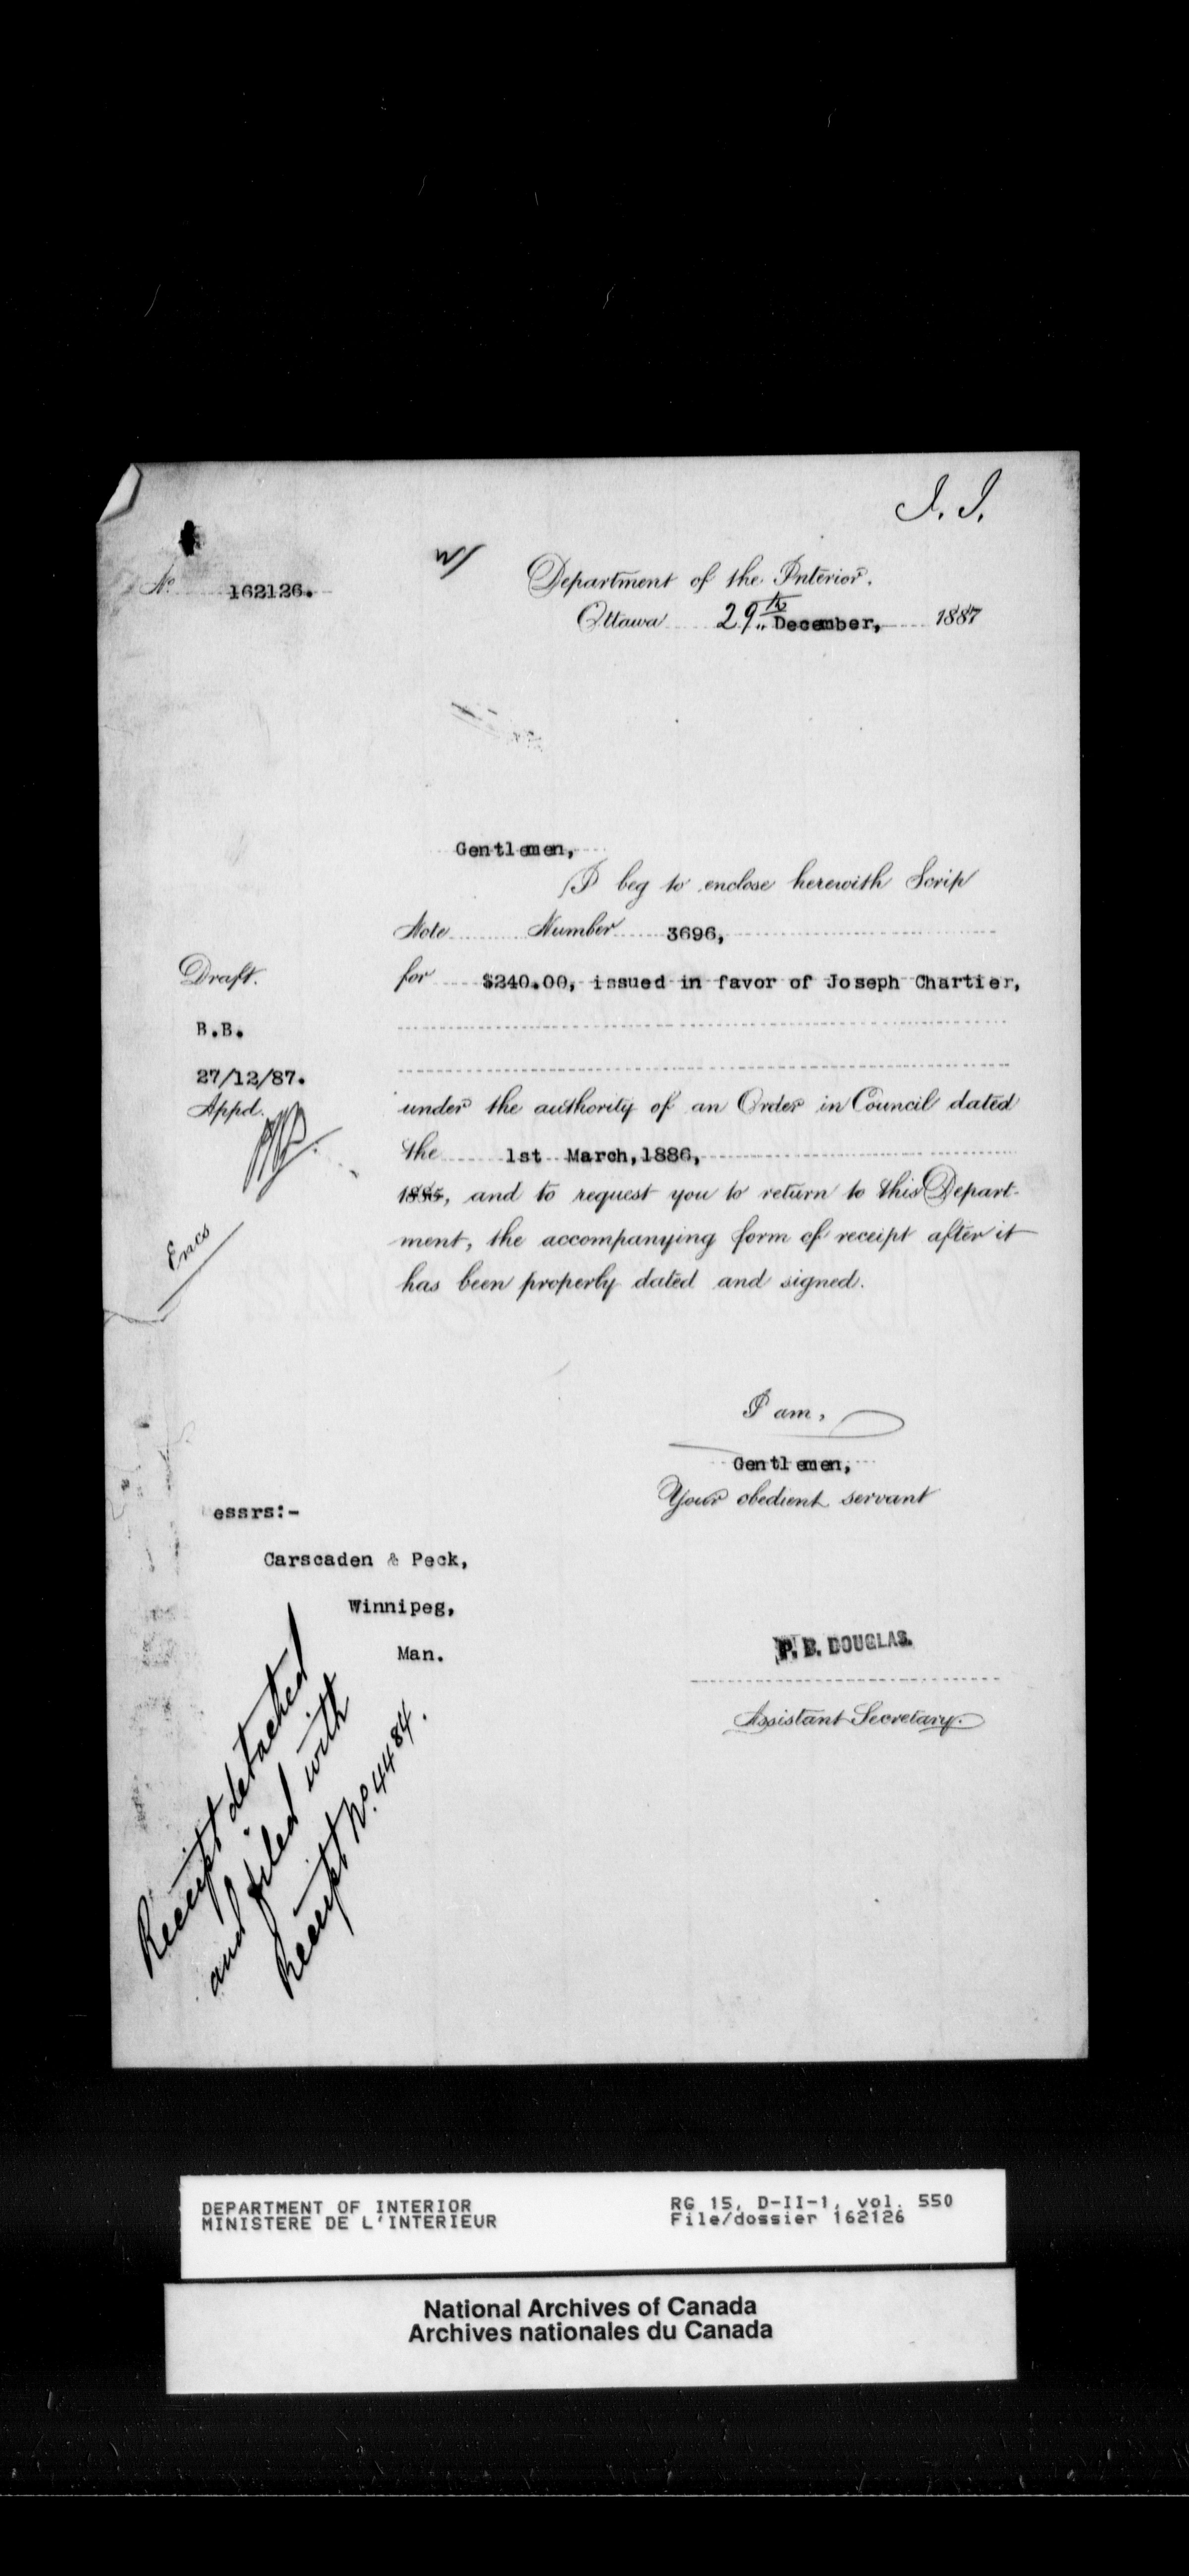 J. J.
Nº 162126.
Department of the Interior.
Ottawa 29th December, 1887
Gentlemen,
I beg to enclose herewith Scrip
Note Number 3696,
for $240.00, issued in favor of Joseph Chartier,
Draft.
B.B.
27/12/87.
Appd.
under the authority of an Order in Council dated
the 1st March, 1886,
1885, and to request you to return to this Depart-
ment, the accompanying form of receipt after it
has been properly dated and signed.
Encs
I am,
Gentlemen,
Your obedient servant
essrs:-
Carscaden & Peck,
Winnipeg,
Man.
P. B. DOUGLAS.
Assistant Secretary.
Receipt detached
and filed with
Receipt No. 4484.
DEPARTMENT OF INTERIOR
MINISTERE DE L'INTERIEUR
RG 15, D-II-1, vol. 550
File/dossier 162126
National Archives of Canada
Archives nationales du Canada